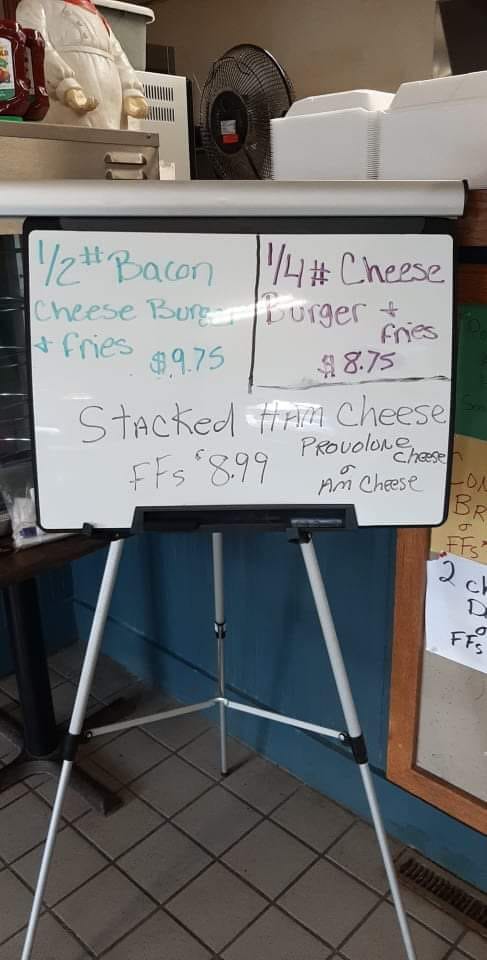 1/2# Bacon
Cheese Burger
+ fries $9.75
1/4# Cheese
Burger +
fries
$8.75
Stacked HAM Cheese
FFs $8.99
PROVOLONE
cheese
or
Am Cheese
BR
or
FFs
2 ch
D
FFs